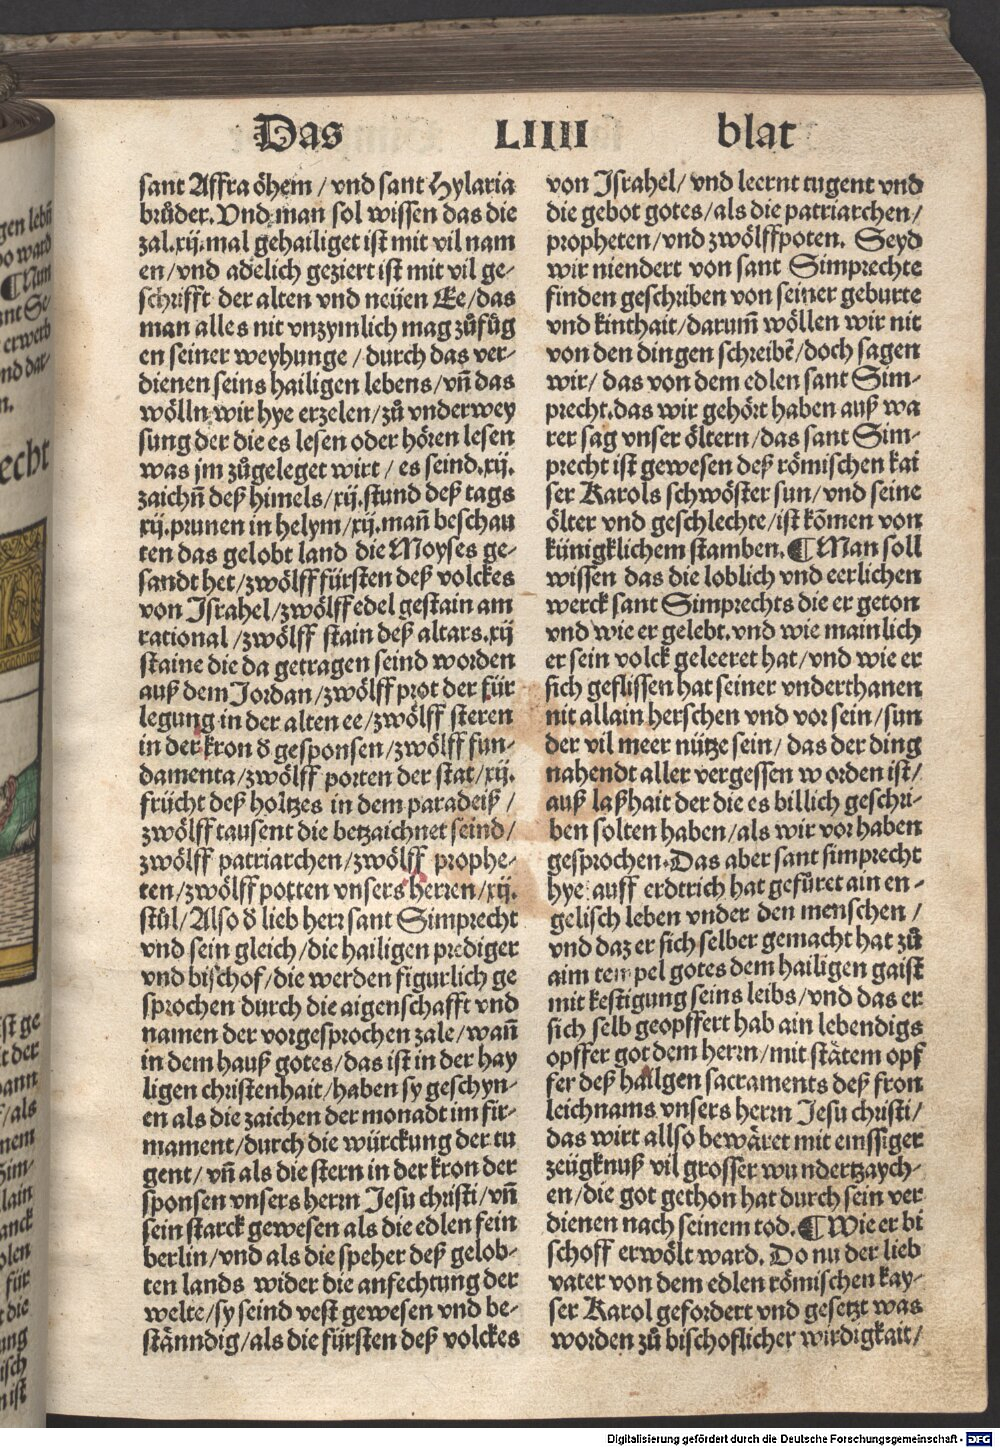 Das LIIII blat
sant Affra öhem / vnd sant Hylaria
brůder. Vnd man sol wissen das die
zal.xij.mal gehailiget ist mit vil nam
en/vnd adelich geziert ist mit vil ge-
schrifft der alten vnd neüen Ee/das
man alles nit vnzymlich mag zůfüg
en seiner weyhunge / durch das ver-
dienen seins hailigen lebens/vn̄ das
wölln wir hye erzelen/zů vnderwey
sung der die es lesen oder hören lesen
was jm zůgeleget wirt / es seind.xij.
zaichn̄ deß himels/xij.stund deß tags
xij.prunen in helym/xij.man̄ beschau
ten das gelobt land die Moyses ge-
sandt het/zwölff fürsten deß volckes
von Israhel/zwölff edel gestain am
rational /zwölff stain deß altars.xij
staine die da getragen seind worden
auß dem Jordan/zwölff prot der für
legung in der alten ee/zwölff steren
in der kron d̕ gesponsen/zwölff fun-
damenta/zwölff porten der stat/xij.
frücht deß holtzes in dem paradeiß /
zwölff tausent die betzaichnet seind/
zwölff patriarchen/zwölff prophe-
ten/zwölff potten vnsers herren/xij.
stůl/Also d̕ lieb herr sant Simprecht
vnd sein gleich/die hailigen prediger
vnd bischof/die werden figurlich ge
sprochen durch die aigenschafft vnd
namen der vorgesprochen zale/wan̄
in dem hauß gotes/das ist in der hay
ligen christenhait/haben sy geschyn-
en als die zaichen der monadt im fir-
mament/durch die würckung der tu
gent/vn̄ als die stern in der kron der
sponsen vnsers herrn Jesu christi/vn̄
sein starck gewesen als die edlen fein
berlin/vnd als die speher deß gelob-
ten lands wider die anfechtung der
welte/sy seind vest gewesen vnd be-
stänndig/als die fürsten deß volckes
von Israhel/ vnd leernt tugent vnd
die gebot gotes/als die patriarchen/
propheten/vnd zwölffpoten. Seyd
wir niendert von sant Simprechte
finden geschriben von seiner geburte
vnd kinthait/darum̄ wöllen wir nit
von den dingen schreibē/doch sagen
wir/ das von dem edlen sant Sim-
precht.das wir gehört haben auß wa
rer sag vnser öltern/das sant Sim-
precht ist gewesen deß römischen kai
ser Karols schwöster sun/vnd seine
ölter vnd geschlechte/ist kōmen von
künigklichem stamben. ¶ Man soll
wissen das die loblich vnd eerlichen
werck sant Simprechts die er geton
vnd wie er gelebt.vnd wie mainlich
er sein volck geleeret hat/vnd wie er
sich geflissen hat seiner vnderthanen
nit allain herschen vnd vor sein/sun
der vil meer nütze sein/das der ding
nahendt aller vergessen worden ist/
auß laßhait der die es billich geschri-
ben solten haben/als wir vor haben
gesprochen.Das aber sant simprecht
hye auff erdtrich hat gefüret ain en-
gelisch leben vnder den menschen /
vnd daz er sich selber gemacht hat zů
aim tempel gotes dem hailigen gaist
mit kestigung seins leibs/vnd das er
sich selb geopffert hab ain lebendigs
opffer got dem herrn/mit stätem opf
fer deß hailgen sacraments deß fron
leichnams vnsers herrn Jesu christi/
das wirt allso bewäret mit emssiger
zeügknuß vil grosser wundertzaych-
en/die got gethon hat durch sein ver
dienen nach seinem tod. ¶ Wie er bi
schoff erwölt ward. Do nu der lieb
vater von dem edlen römischen kay-
ser Karol gefordert vnd gesetzt was
worden zů bischoflicher wirdigkait/
Digitalisierung gefördert durch die Deutsche Forschungsgemeinschaft - DFG